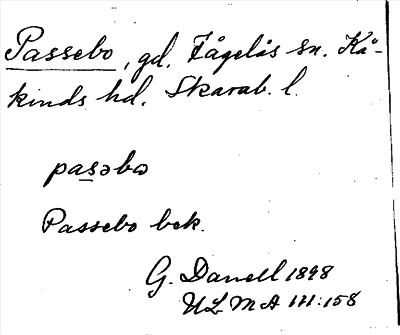 Passebo, gd. Fågelås sn. Kå-
kinds hd. Skarab. l.
pasəbɷ
Passebo bek.
G. Danell 1898
ULMA 111:158